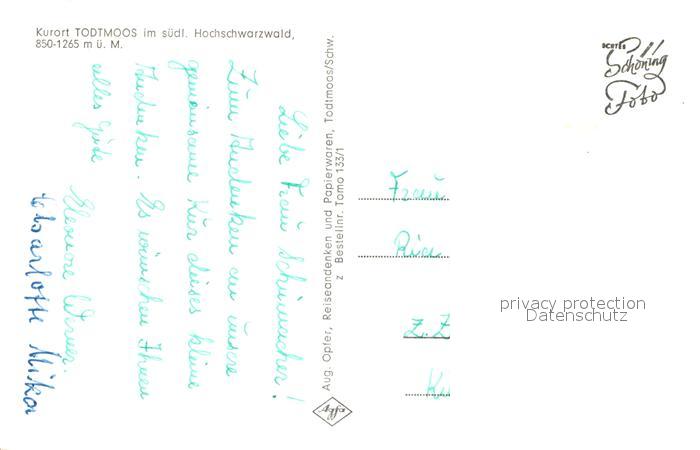 Kurort TODTMOOS im südl. Hochschwarzwald,
850-1265 m ü. M.
Liebe Frau Schumacher!
Zum Andenken an unsere
gemeinsame Kur dieses kleine
Andenken. Es wünschen Ihnen
alles Gute
Eleonore Werner.
Charlotte Mika
Aug. Opfer, Reiseandenken und Papierwaren, Todtmoos/Schw.
z Bestellnr. Tomo 133/1
Agfa
ECHTES
Schöning
Foto
Frau
Ria
z.Z
Ku
privacy protection
Datenschutz